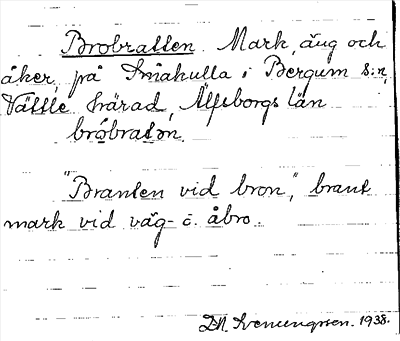 Brobratten. Mark, äng och
åker, på Småkulla i Bergum s:n,
Vättle härad, Älfsborgs län
bròbratǝn.
"Branten vid bron", brant
mark vid väg- o. åbro.
1938.